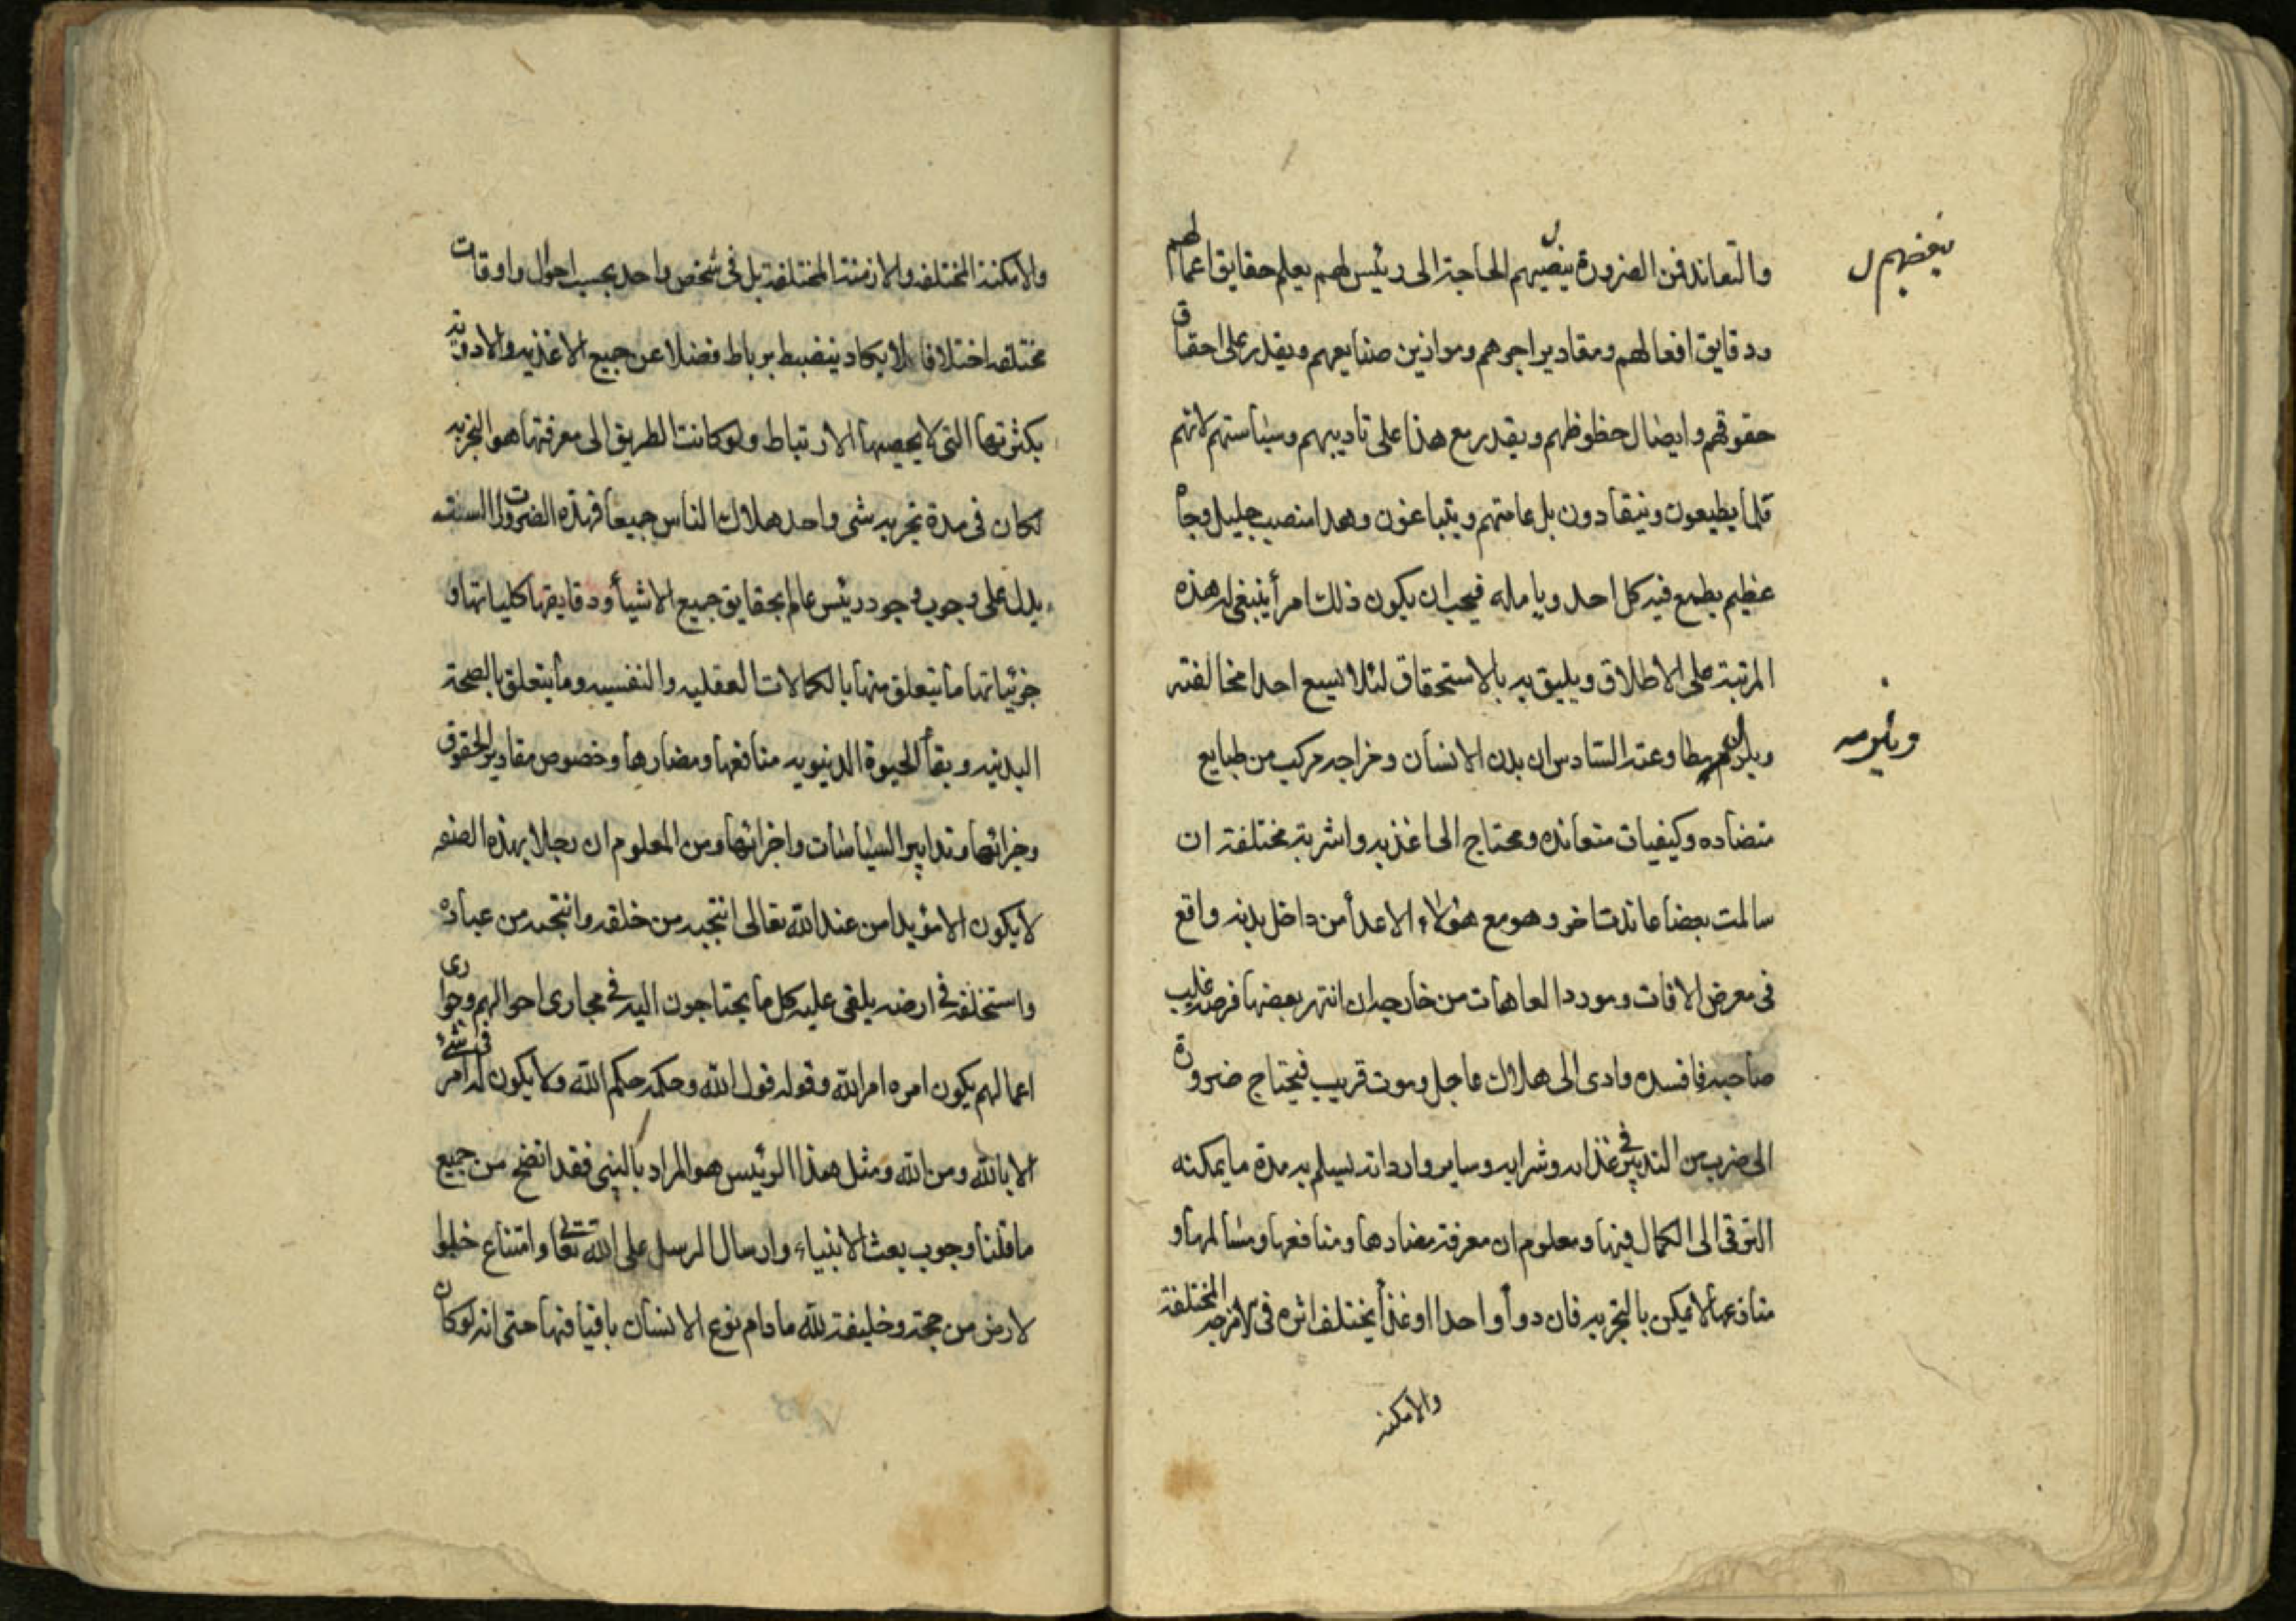 والتعاند فمن الضرورة ينضيهم الحاجة الى رئيس لهم يعلم حقايق اعمالهم
بعضهم ل
ودقايق افعالهم ومقادير اجرهم وموازين صنايعهم ويقدر على احقاق
حقوقهم وايصال حظوظهم ويقدر مع هذا على تاديبهم وسياستهم لانهم
قلما يطيعون وينقادون بل عامتهم ويتباغون وهذا منصب جليل وجاه
عظيم يطمع فيه كل احد ويامله فيجب ان يكون ذلك امرأ ينبغى له هذه
المرتبة على الاطلاق ويليق به بالاستحقاق لئلا يسع احدا مخالفته
ويلزمهم مطاوعته السادس ان بدن الانسان ومزاجه مركب من طبايع
ويلزمه
متضاده وكيفيات متعانده ومحتاج الى اغذيه واشربة مختلفة ان
سالمت بعضا عاندت اخر وهو مع هؤلاء الاعدأ من داخل بدنه واقع
فى معرض الافات ومورد العاهات من خارجه ان انتهز بعضها فرصه غلب
صاحبه فافسده وادى الى هلاك عاجل وموت قريب فيحتاج ضرورة
الى ضرب من التدبير فى غذاىه وشرابه وساير وارداته ليسلم به مدة ما يمكنه
الترقى الى الكمال فيها ومعلوم ان معرفة مضارها ومنافعها ومسالمها و
منازعها لا يمكن بالتجربه فان دوأ واحدا او غذأ يختلف اثره فى الامزجه المختلفة
والامكنه
والامكنة المختلفه والازمنة المختلفة بل فى شخص واحد بحسب احوال واوقات
مختلفه اختلافا لا يكاد ينضبط برباط فضلا عن جميع الاغذيه والادويه
بكثرتها التى لا يحصيها الارتباط ولو كانت الطريق الى معرفتها هو التجربه
لكان فى مدة تجربه شى واحد هلاك الناس جميعا فهذه الضرورات السته
يدل على وجوب وجود رئيس عالم بحقايق جميع الاشيأ ودقايقها كلياتها و
جزئياتها ما يتعلق منها بالكمالات العقليه والنفسيه وما يتعلق بالصحة
البدنيه وبقأ الحيوة الدنيويه منافعها ومضارها وخصوص مقادير الحقوق
وجزائها وتدابير السياسات واجزائها ومن المعلوم ان رجلا بهذه الصفه
لا يكون الا مؤيدا من عند الله تعالى انتجبه من خلقه وانتجبه من عباده
واستخلفه فى ارضه يلقى عليه كل ما يحتاجون اليه فى مجارى احوالهم وجوارى
اعمالهم يكون امره امر الله وقوله قول الله وحكمه حكم الله ولا يكون له امر فى شئ
الا بالله ومن الله ومثل هذا الرئيس هو المراد بالنبى فقد اتضح من جميع
ما قلنا وجوب بعث الانبياء وارسال الرسل على الله تعالى وامتناع خلو
لارض من حجة وخليفة لله ما دام نوع الانسان باقيا فيها حتى انه لو كان